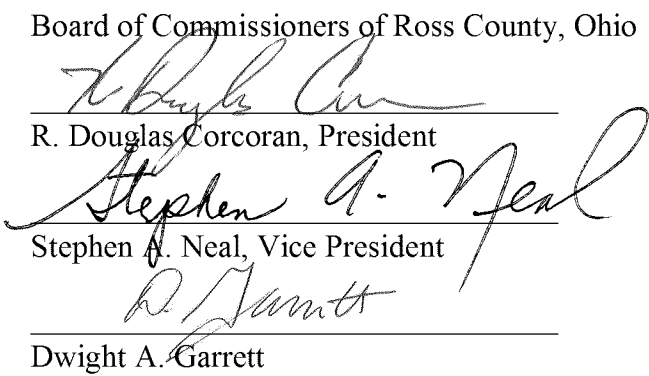 Board of Commissioners of Ross County, Ohio
R Douglas Cor
R. Douglas Corcoran, President
Stephen A. Neal
Stephen A. Neal, Vice President
D. Garrett
Dwight A. Garrett